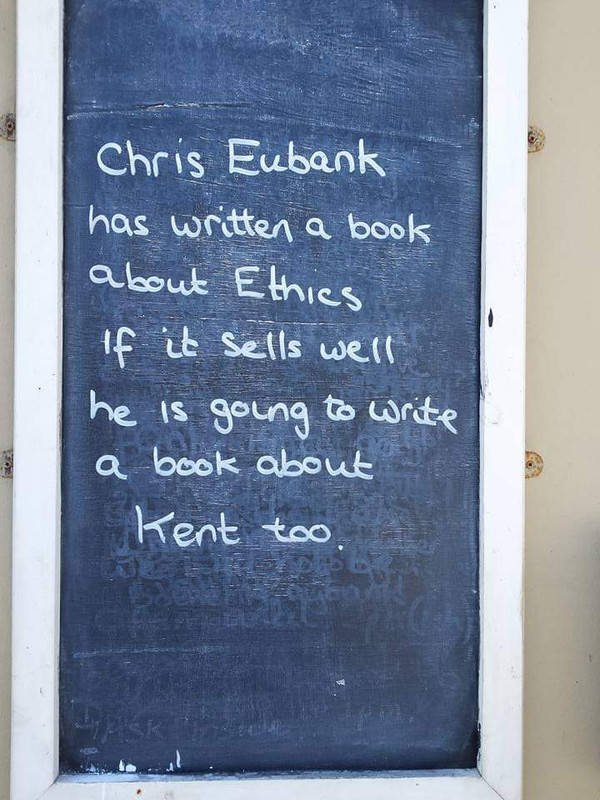 Chris Eubank
has written a book
about Ethics
If it sells well
he is going to write
a book about
Kent too.